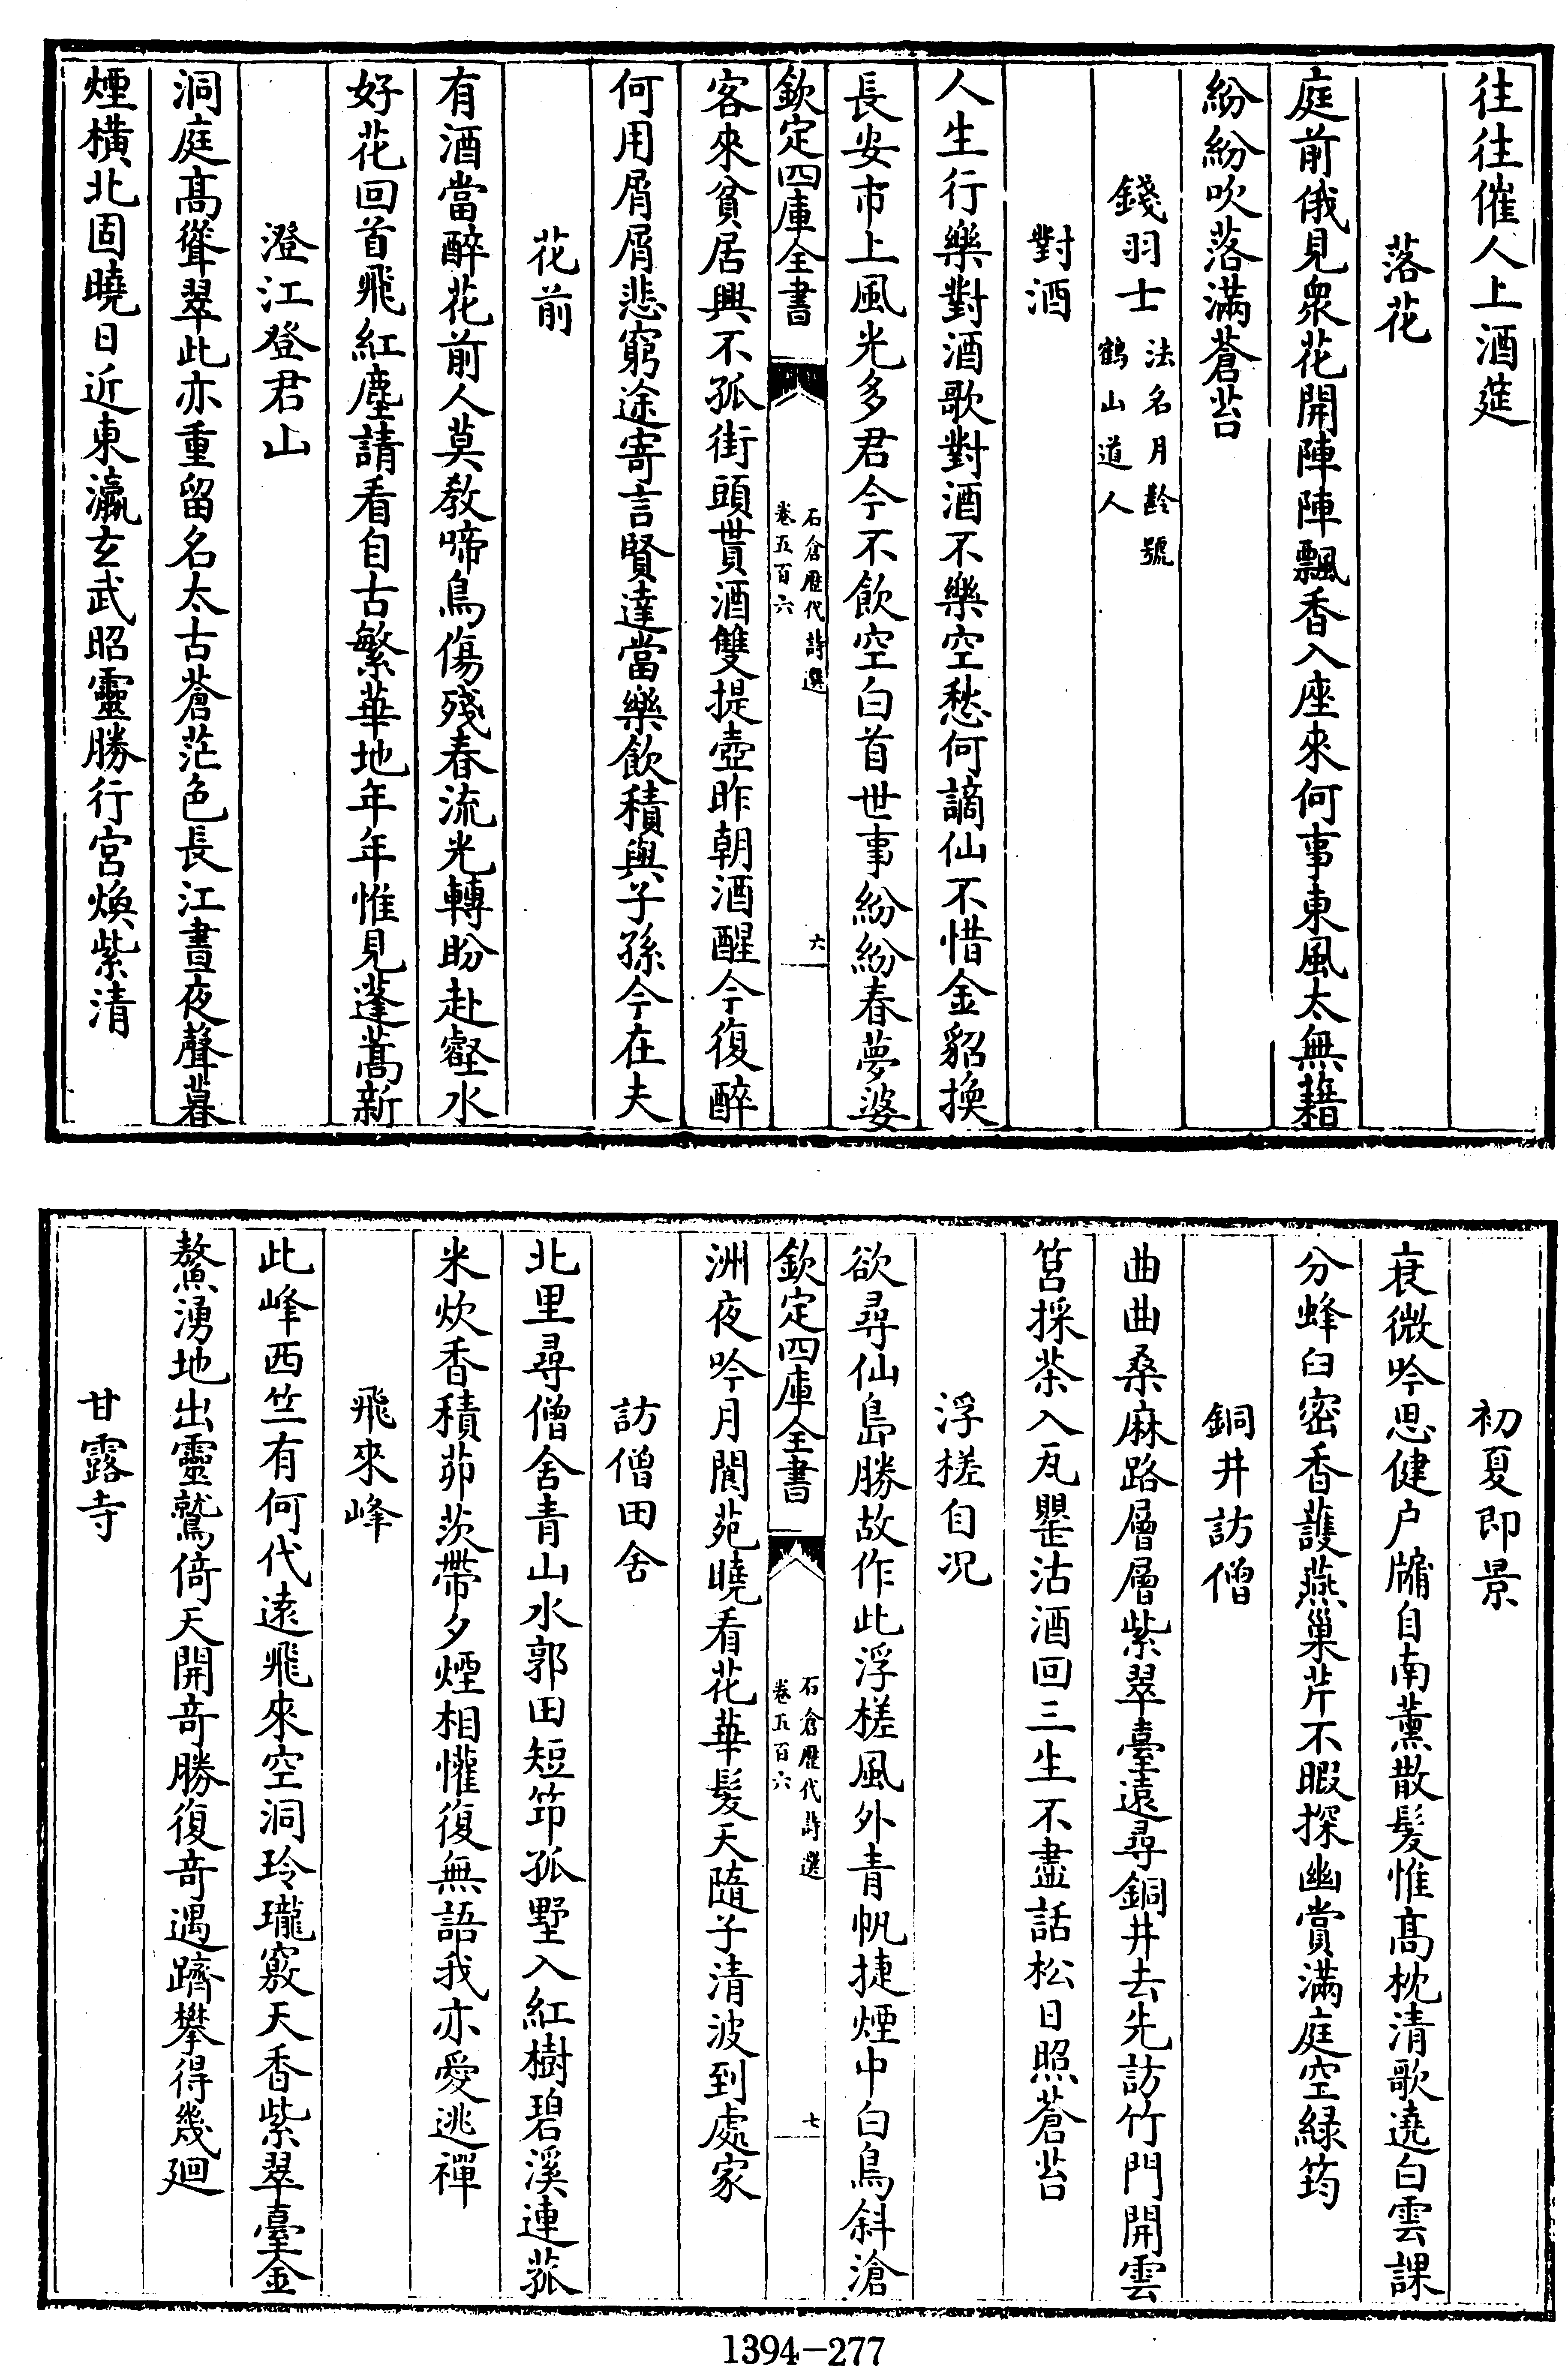 往往催人上酒筵
落花
庭前俄見衆花開陣陣飄香入座來何事東風太無藉
紛紛吹落滿蒼苔
錢羽士法名月齡號
鶴山道人
對酒
人生行樂對酒歌對酒不樂空愁何謫仙不惜金貂換
長安市上風光多君今不飲空白首世事紛紛春夢婆
欽定四庫全書
石倉歷代詩選
卷五百六
六
客來貧居興不孤街頭貰酒雙提壺昨朝酒醒今復醉
何用屑屑悲窮途寄言賢達當樂飲積與子孫今在夫
花前
有酒當醉花前人莫教啼鳥傷殘春流光轉盼赴壑水
好花回首飛紅塵請看自古繁華地年年惟見蓬蒿新
澄江登君山
洞庭髙聳翠此亦重留名太古蒼茫色長江晝夜聲暮
煙橫北固曉日近東瀛玄武昭靈勝行宮煥紫清
初夏即景
衰微吟思健户牖自南薰散髪惟髙枕清歌遶白雲課
分蜂臼密香護燕巢芹不暇探幽賞滿庭空緑筠
銅井訪僧
曲曲桑麻路層層紫翠臺遠尋銅井去先訪竹門開雲
筥採茶入瓦罌沽酒回三生不盡話松日照蒼苔
浮槎自况
欲尋仙島勝故作此浮槎風外青帆捷煙中白鳥斜滄
欽定四庫全書
石倉歷代詩選
卷五百六
七
洲夜吟月閬苑曉看花華髪天隨子清波到處家
訪僧田舍
北里尋僧舍青山水郭田短笻孤墅入紅樹碧溪連菰
米炊香積茆茨帶夕煙相懽復無語我亦愛逃禪
飛來峰
此峰西竺有何代遠飛來空洞玲瓏竅天香紫翠臺金
鰲湧地出靈鷲倚天開奇勝復奇遇躋攀得幾廻
甘露寺
1394-277